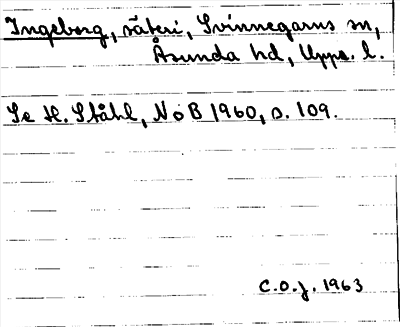 Ingeborg, säteri, Svinnegarns sn,
Åsunda hd, Upps. l.
Se H. Ståhl, NoB 1960, s. 109.
C.O.J. 1963